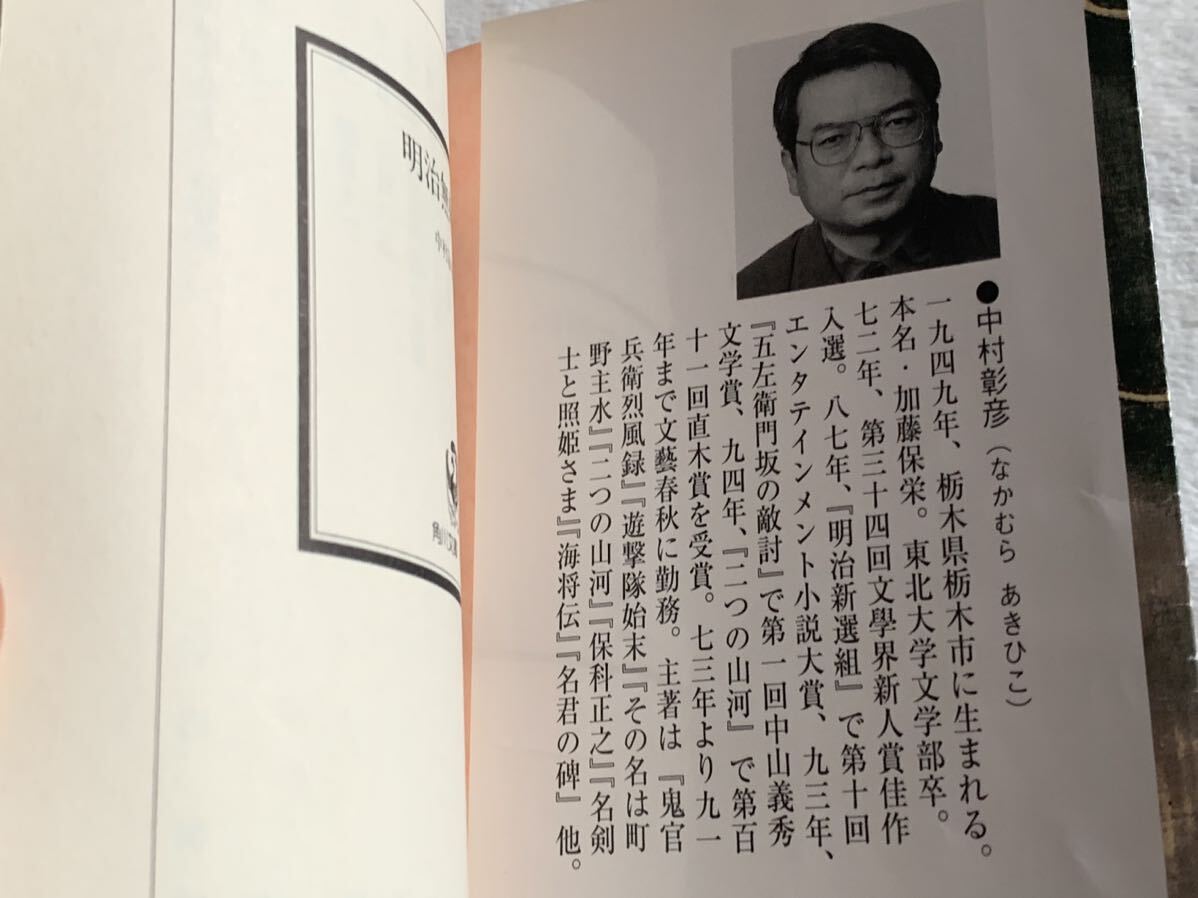 ●中村彰彦（なかむら あきひこ）
一九四九年、栃木県栃木市に生まれる。
本名・加藤保栄。東北大学文学部卒。
七二年、第三十四回文學界新人賞佳作
入選。八七年、『明治新選組』で第十回
エンタテインメント小説大賞、九三年、
『五左衛門坂の敵討』で第一回中山義秀
文学賞、九四年、『二つの山河』で第百
十一回直木賞を受賞。七三年より九一
年まで文藝春秋に勤務。主著は『鬼官
兵衛烈風録』『遊撃隊始末』『その名は町
野主水』『二つの山河』『保科正之』『名剣
士と照姫さま』『海将伝』『名君の碑』他。
明治無
中村
角川文庫